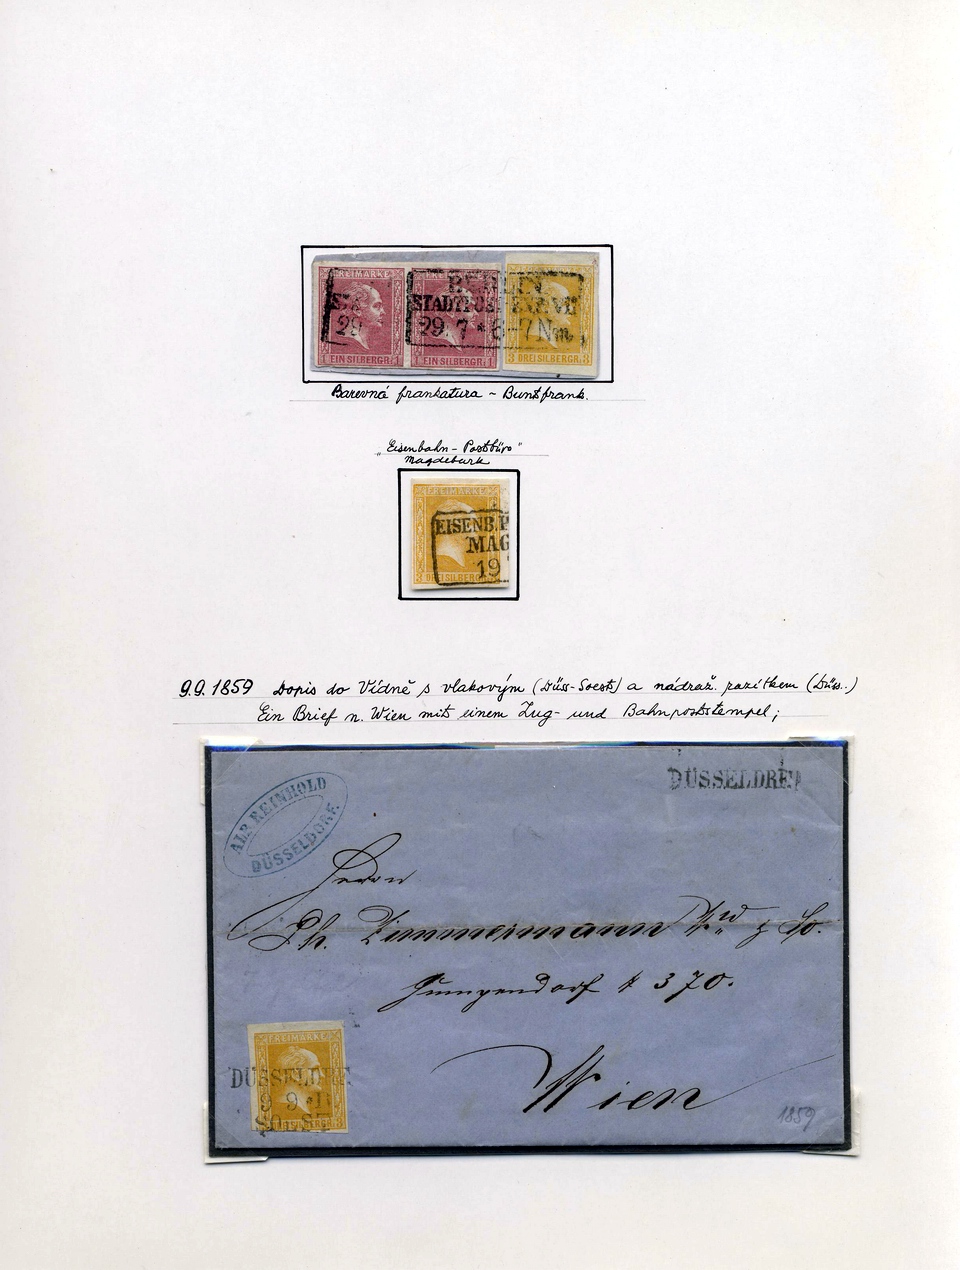 FREIMARKE
BERLIN
STADTPOST-EXP. VII
29 7 * 6-7 Nm
29
1 EIN SILBERGR. 1
1 EIN SILBERGR. 1
3 DREI SILBERGR. 3
Barevná frankatura ~ Buntfrank.
„Eisenbahn - Postbüro"
Magdeburk
FREIMARKE
EISENB. P
MAG
19
3 DREI SILBERGR.
9.9.1859 Dopis do Vídně s vlakovým (Düss-Soest) a nádraž. razítkem (Düss..)
Ein Brief n. Wien mit einem Zug- und Bahnpoststempel;
ALB. REINHOLD
DÜSSELDORF.
DÜSSELDRF
Herrn
Ph. Zimmermann Ww & Co.
Gumpendorf # 370.
FREIMARKE
DÜSSELDRF
9 II
SILBERGR. 3
Wien
1859